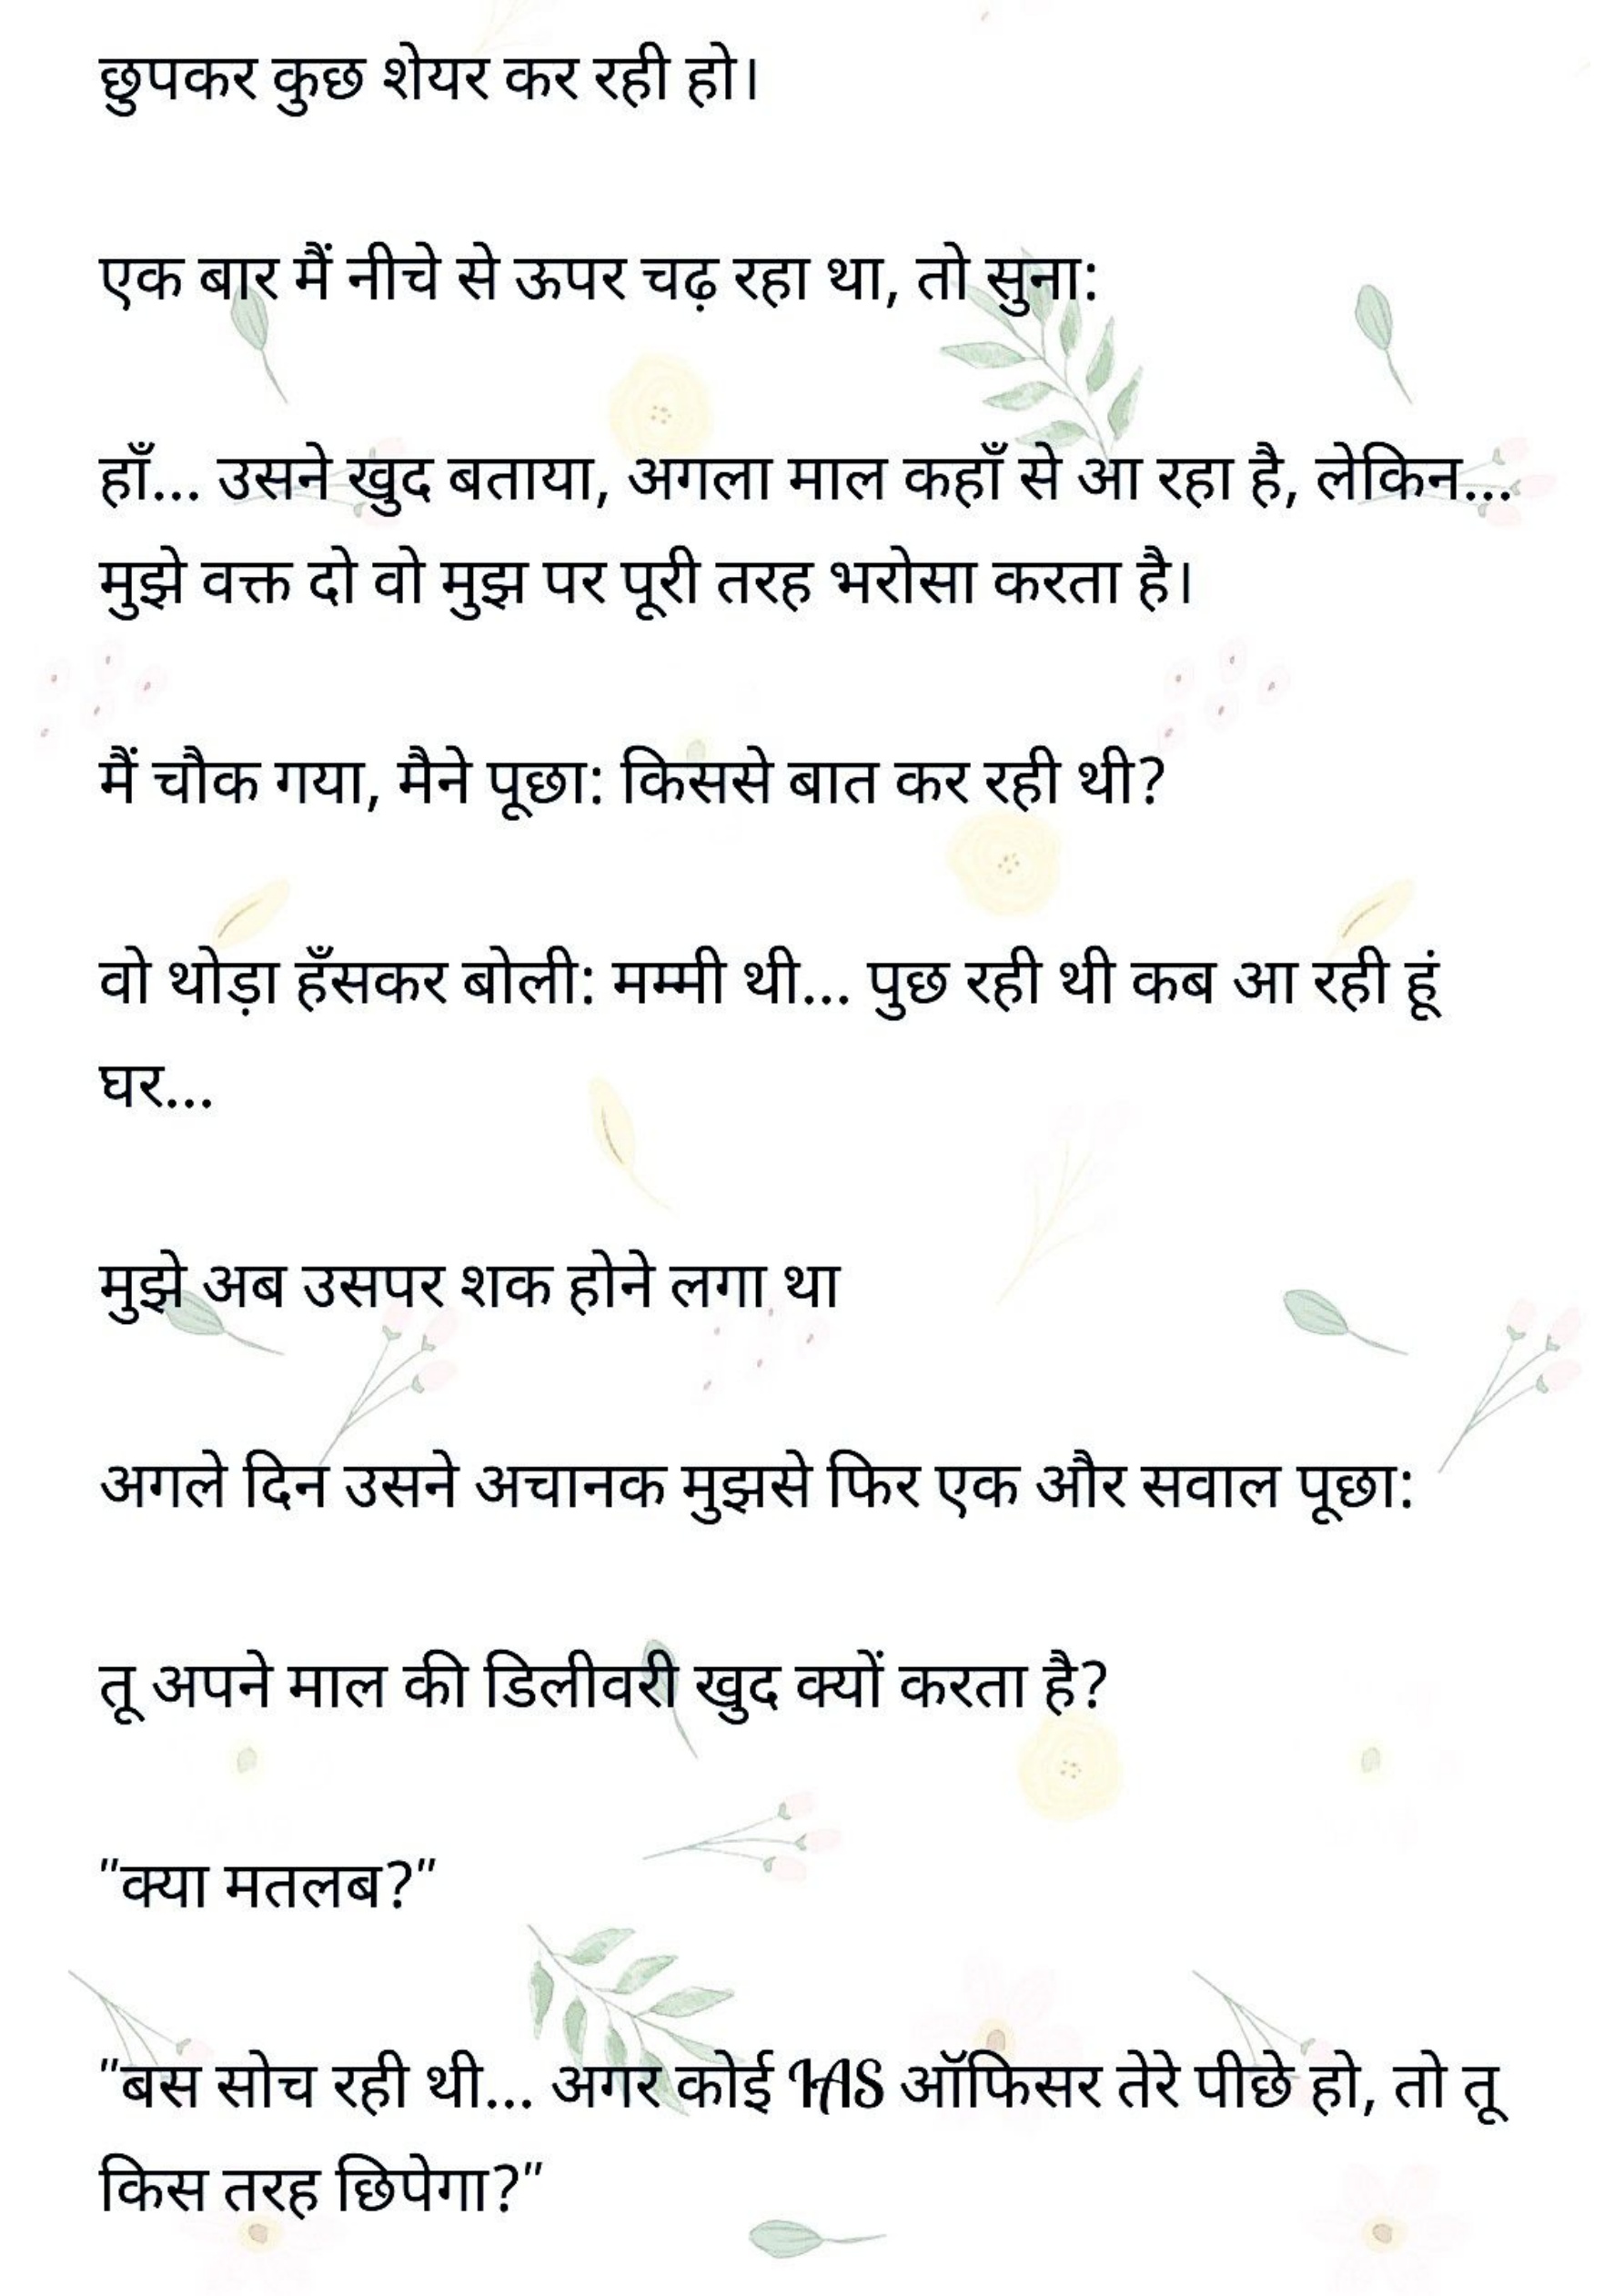 छुपकर कुछ शेयर कर रही हो।
एक बार मैं नीचे से ऊपर चढ़ रहा था, तो सुना:
हाँ... उसने खुद बताया, अगला माल कहाँ से आ रहा है, लेकिन...
मुझे वक्त दो वो मुझ पर पूरी तरह भरोसा करता है।
मैं चौक गया, मैने पूछा: किससे बात कर रही थी?
वो थोड़ा हँसकर बोली: मम्मी थी... पुछ रही थी कब आ रही हूं
घर...
मुझे अब उसपर शक होने लगा था
अगले दिन उसने अचानक मुझसे फिर एक और सवाल पूछा:
तू अपने माल की डिलीवरी खुद क्यों करता है?
"क्या मतलब?"
"बस सोच रही थी... अगर कोई IAS ऑफिसर तेरे पीछे हो, तो तू
किस तरह छिपेगा?"